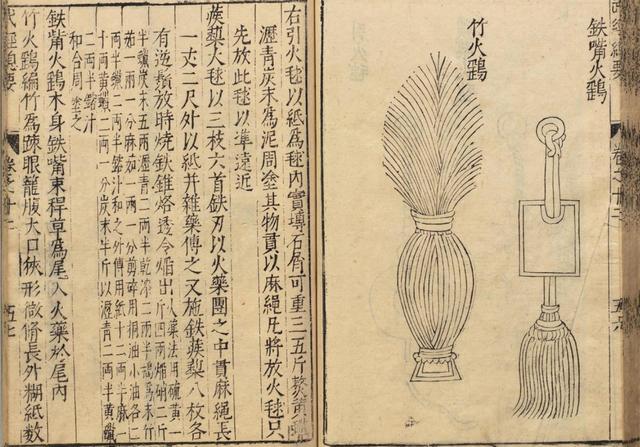 鉄嘴火鷂
竹火鷂
右引火毬以紙為毬內實塼石屑可重三五斤熬黃蠟
瀝青炭末為泥周塗其物貫以麻繩凡將放火毬只
先放此毬以準遠近
蒺藜火毬以三枝六首鉄刃以火藥團之中貫麻繩長
一丈二尺外以紙并雜藥傅之又施鉄蒺藜八枚各
有逆鬚放時燒鉄錐烙透令焰出
火藥法用硫黃一
斤四兩焰硝二斤
半麤炭末五兩瀝青二兩半乾漆二兩半搗為末竹
茹一兩一分麻茹一兩一分剪碎用桐油小油各二
兩半蠟二兩半鎔汁和之外傅用紙十二兩半麻一
十兩黃丹一兩一分炭末半斤以瀝青二兩半黃蠟
二兩半鎔汁
和合周塗之
鉄嘴火鷂木身鉄嘴束稈草為尾入火藥於尾內
竹火鷂編竹為疎眼籠腹大口狹形微脩長外糊紙數
武經總要
卷之十二
五七